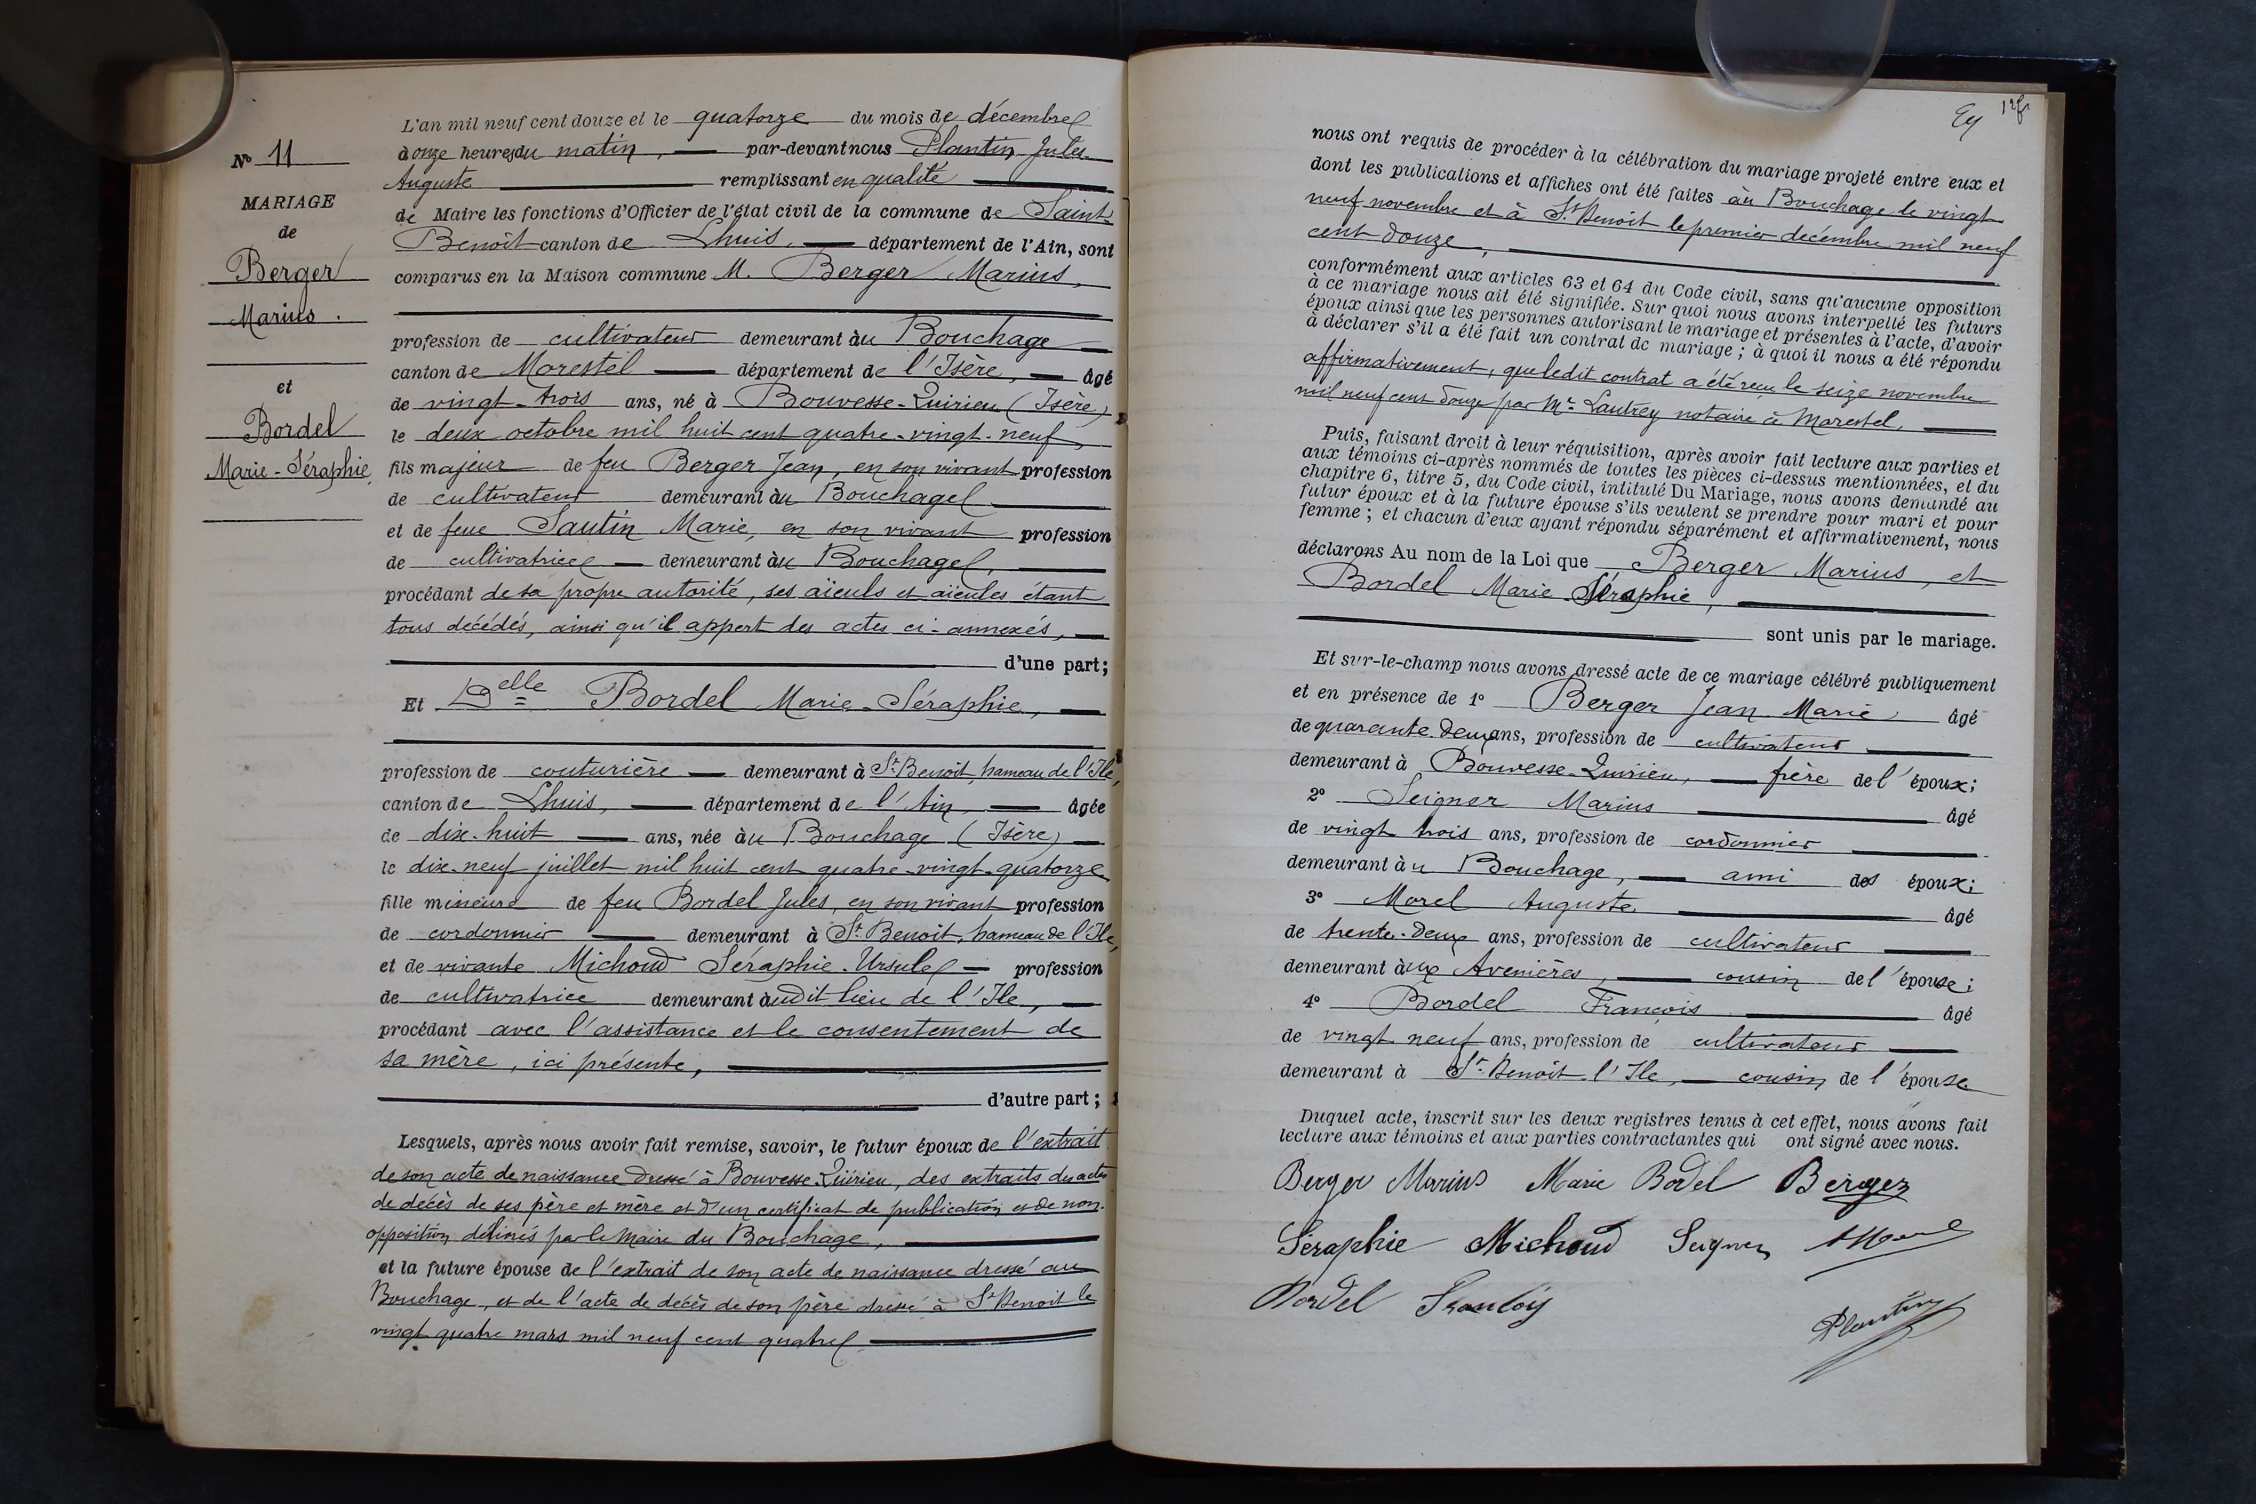 N° 11
MARIAGE
de
Berger
Marius.
et
Bordel
Marie-Séraphie,
L'an mil neuf cent douze et le quatorze du mois de décembre
à onze heures du matin, par-devant nous Plantin Jules
Auguste remplissant en qualité
de Maire les fonctions d'Officier de l'état civil de la commune de Saint
Benoît canton de Lhuis, département de l'Ain, sont
comparus en la Maison commune M. Berger Marius,
profession de cultivateur demeurant au Bouchage
canton de Morestel département de l'Isère, âgé
de vingt-trois ans, né à Bouvesse-Quirieu (Isère)
le deux octobre mil huit cent quatre-vingt-neuf,
fils majeur de feu Berger Jean, en son vivant profession
de cultivateur demeurant au Bouchage
et de feue Sautin Marie, en son vivant profession
de cultivatrice demeurant au Bouchage,
procédant de sa propre autorité, ses aïeuls et aïeules étant
tous décédés, ainsi qu'il appert des actes ci-annexés,
d'une part;
Et Delle Bordel Marie-Séraphie,
profession de couturière demeurant à St Benoit, hameau de l'Ile,
canton de Lhuis, département de l'Ain, âgée
de dix-huit ans, née au Bouchage (Isère)
le dix-neuf juillet mil huit cent quatre-vingt-quatorze
fille mineure de feu Bordel Jules, en son vivant profession
de cordonnier demeurant à St Benoit, hameau de l'Ile,
et de vivante Michoud Séraphie-Ursule profession
de cultivatrice demeurant audit lieu de l'Ile,
procédant avec l'assistance et le consentement de
sa mère, ici présente,
d'autre part;
Lesquels, après nous avoir fait remise, savoir, le futur époux de l'extrait
de son acte de naissance dressé à Bouvesse-Quirieu, des extraits des actes
de décès de ses père et mère et d'un certificat de publication et de non-
opposition délivrés par le Maire du Bouchage,
et la future épouse de l'extrait de son acte de naissance dressé au
Bouchage, et de l'acte de décès de son père dressé à St Benoit le
vingt quatre mars mil neuf cent quatre
nous ont requis de procéder à la célébration du mariage projeté entre eux et
dont les publications et affiches ont été faites au Bouchage le vingt
neuf novembre et à St Benoit le premier décembre mil neuf
cent douze,
conformément aux articles 63 et 64 du Code civil, sans qu'aucune opposition
à ce mariage nous ait été signifiée. Sur quoi nous avons interpellé les futurs
époux ainsi que les personnes autorisant le mariage et présentes à l'acte, d'avoir
à déclarer s'il a été fait un contrat de mariage; à quoi il nous a été répondu
affirmativement, que ledit contrat a été reçu le seize novembre
mil neuf cent douze par Me Lautrey notaire à Morestel,
Puis, faisant droit à leur réquisition, après avoir fait lecture aux parties et
aux témoins ci-après nommés de toutes les pièces ci-dessus mentionnées, et du
chapitre 6, titre 5, du Code civil, intitulé Du Mariage, nous avons demandé au
futur époux et à la future épouse s'ils veulent se prendre pour mari et pour
femme; et chacun d'eux ayant répondu séparément et affirmativement, nous
déclarons Au nom de la Loi que Berger Marius, et
Bordel Marie Séraphie,
sont unis par le mariage.
Et sur-le-champ nous avons dressé acte de ce mariage célébré publiquement
et en présence de 1° Berger Jean Marie âgé
de quarante-deux ans, profession de cultivateur
demeurant à Bouvesse-Quirieu, frère de l'époux;
2° Seigner Marius âgé
de vingt trois ans, profession de cordonnier
demeurant au Bouchage, ami des époux;
3° Morel Auguste âgé
de trente-deux ans, profession de cultivateur
demeurant aux Avenières, cousin de l'épouse;
4° Bordel François âgé
de vingt neuf ans, profession de cultivateur
demeurant à St Benoit l'Ile, cousin de l'épouse
Duquel acte, inscrit sur les deux registres tenus à cet effet, nous avons fait
lecture aux témoins et aux parties contractantes qui ont signé avec nous.
Berger Marius Marie Bordel Berger
Séraphie Michoud Seigner AMorel
Bordel François
Plantin